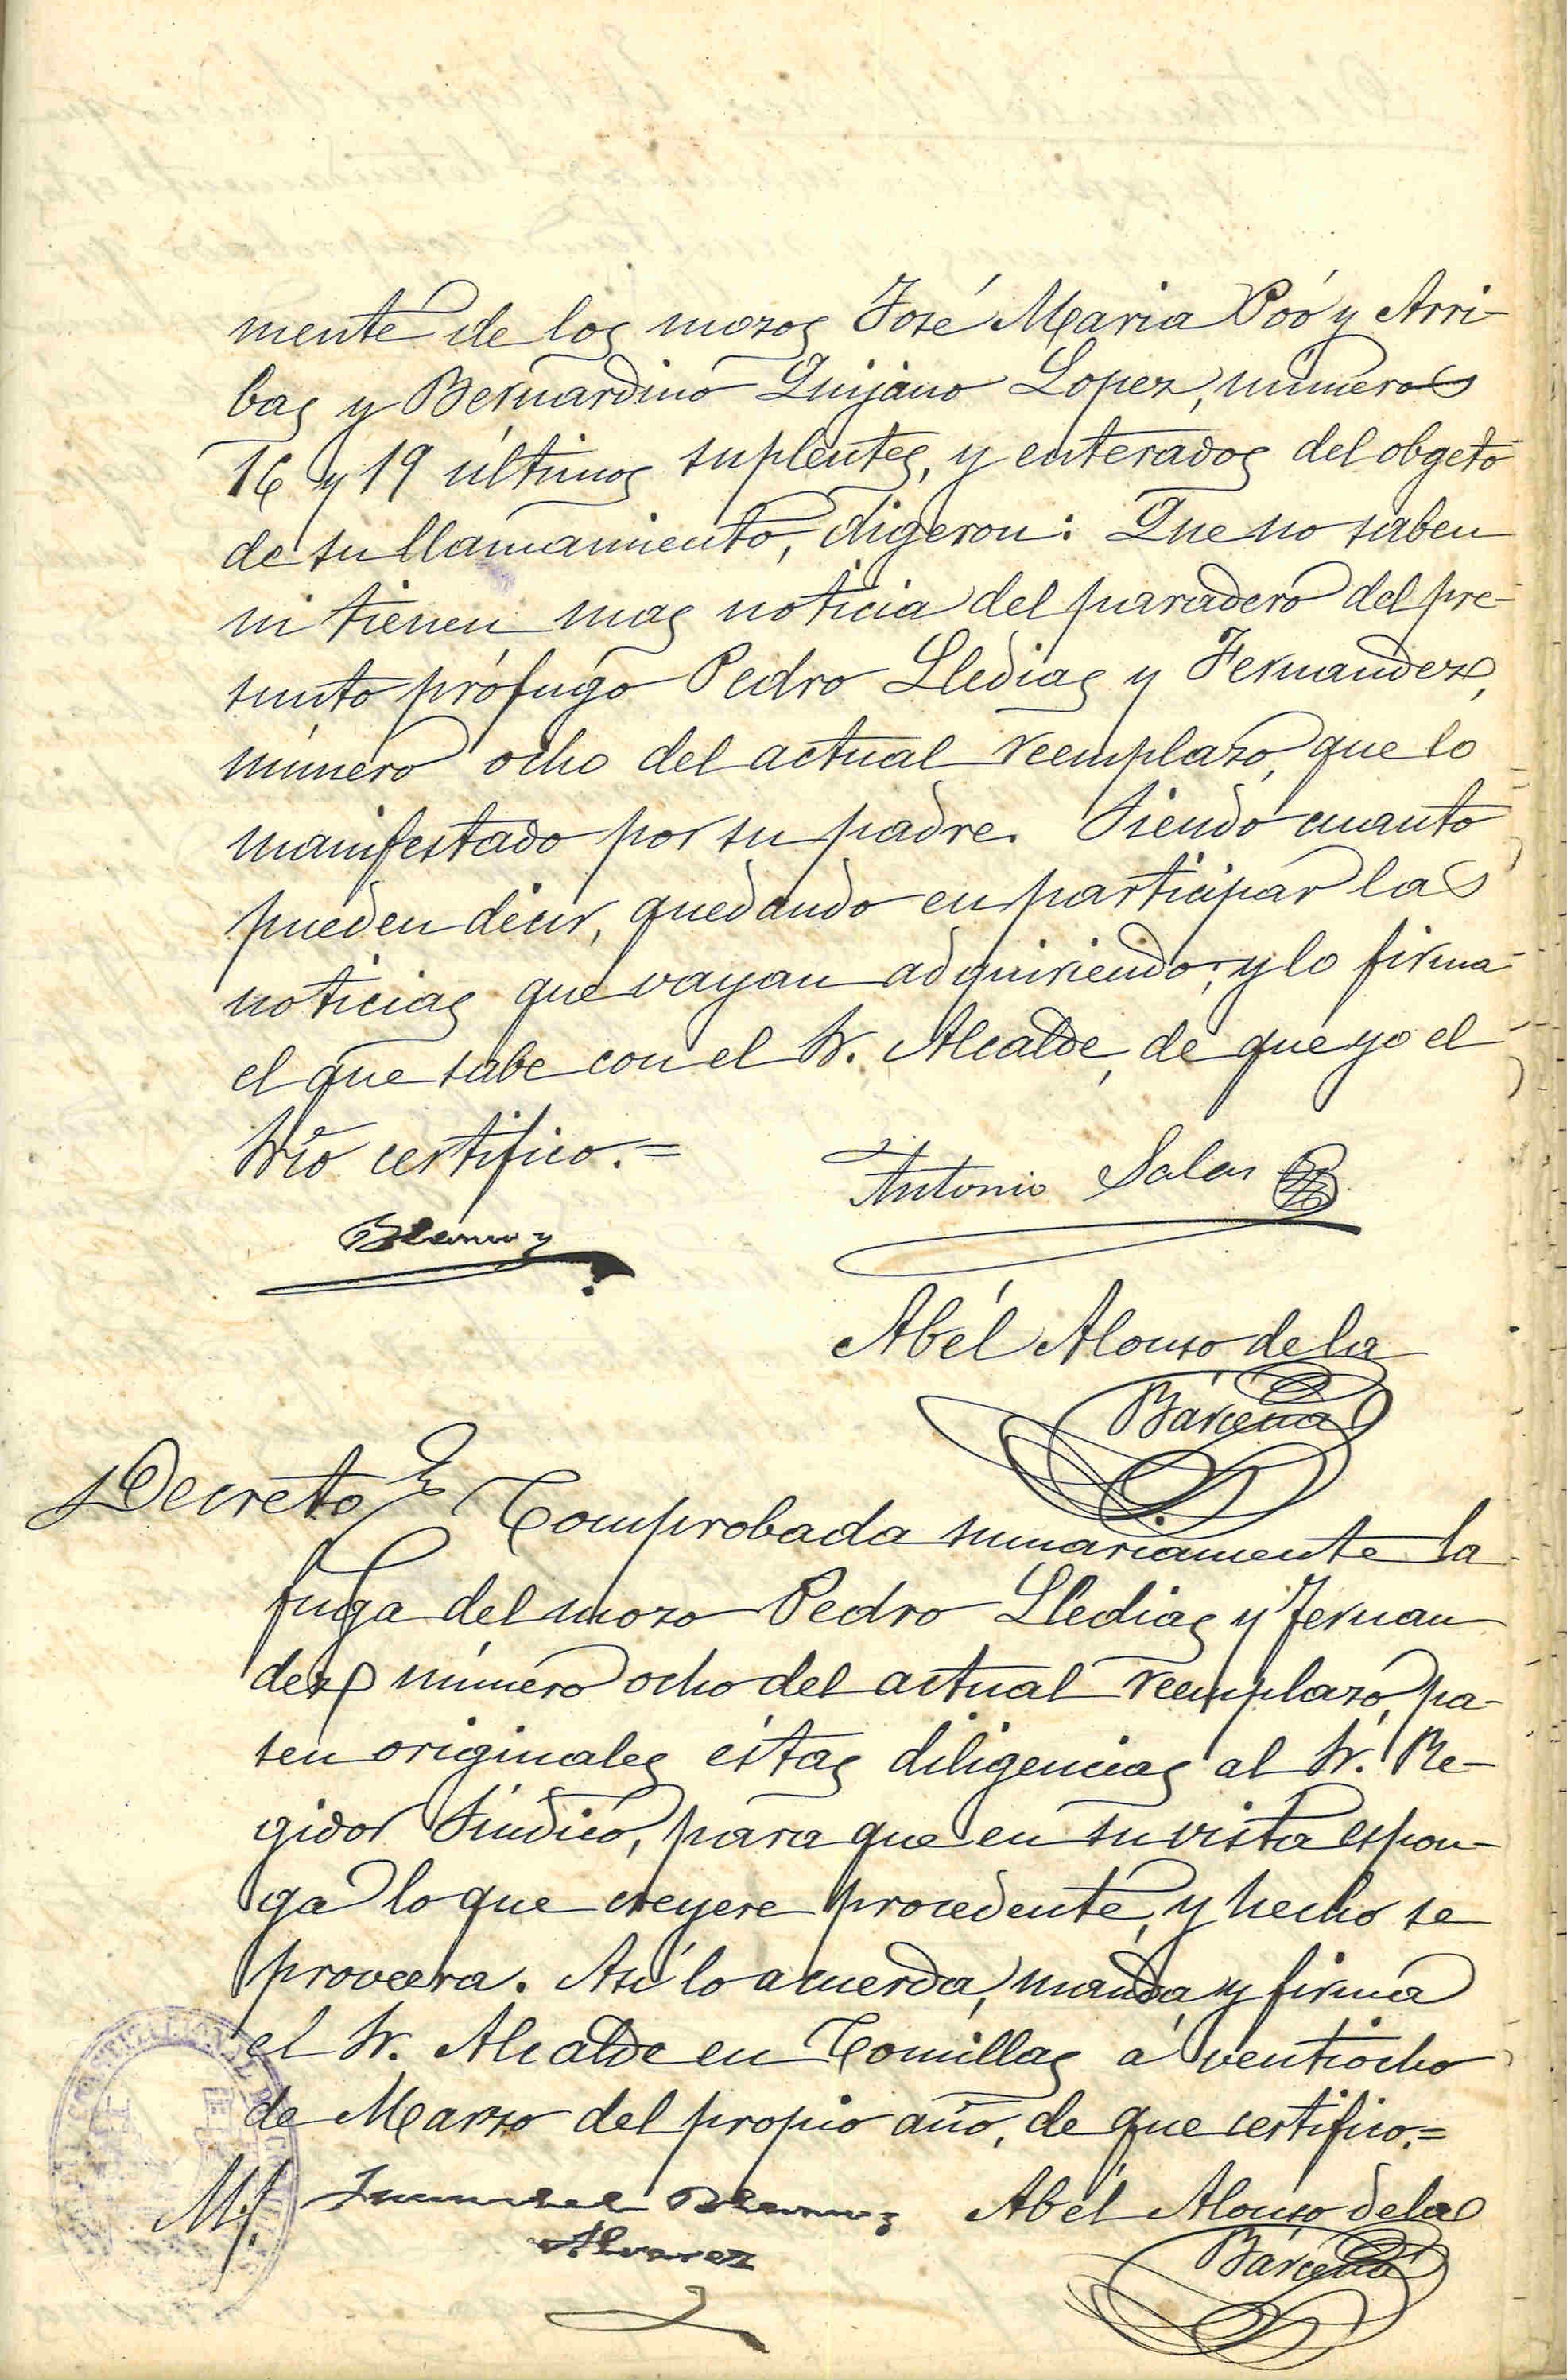 mente de los mozos José Maria Poó y Arri-
bas y Bernardino Quijano Lopez, números
16 y 19 últimos suplentes, y enterados del obgeto
de su llamamiento, digeron: Que no saben
ni tienen mas noticia del paradero del pre-
sunto prófugo Pedro Lledias y Fernandez,
número ocho del actual reemplazo, que lo
manifestado por su padre. Siendo cuanto
pueden decir, quedando en participar las
noticias que vayan adquiriendo; y lo firma
el que sabe con el Sr. Alcalde, de que yo el
Srio certifico.=
Antonio Salas
Abél Alonso de la
Bárcena
Decreto
Comprobada sumariamente la
fuga del mozo Pedro Lledias y Fernan
dez número ocho del actual reemplazo, pa-
sen originales éstas diligencias al Sr. Re-
gidor Síndico, para que en su vista espon-
ga lo que creyere procedente, y hecho se
proveera. Así lo acuerda, manda y firma
el Sr. Alcalde en Comillas á ventiocho
de Marzo del propio año, de que certifico.=
Abél Alonso de la
Alvarez
Bárcena